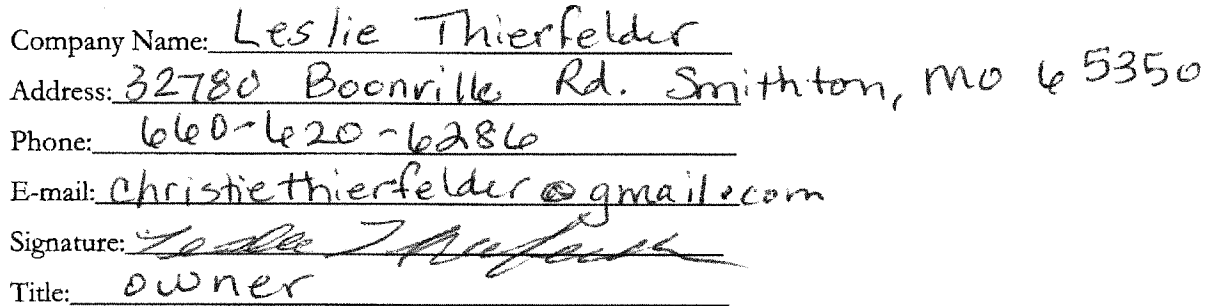 Company Name: Leslie Thierfelder
Address: 32780 Boonville Rd. Smithton, MO 65350
Phone: 660-620-6286
E-mail: christiethierfelder@gmail.com
Signature: Leslie Thierfelder
Title: owner